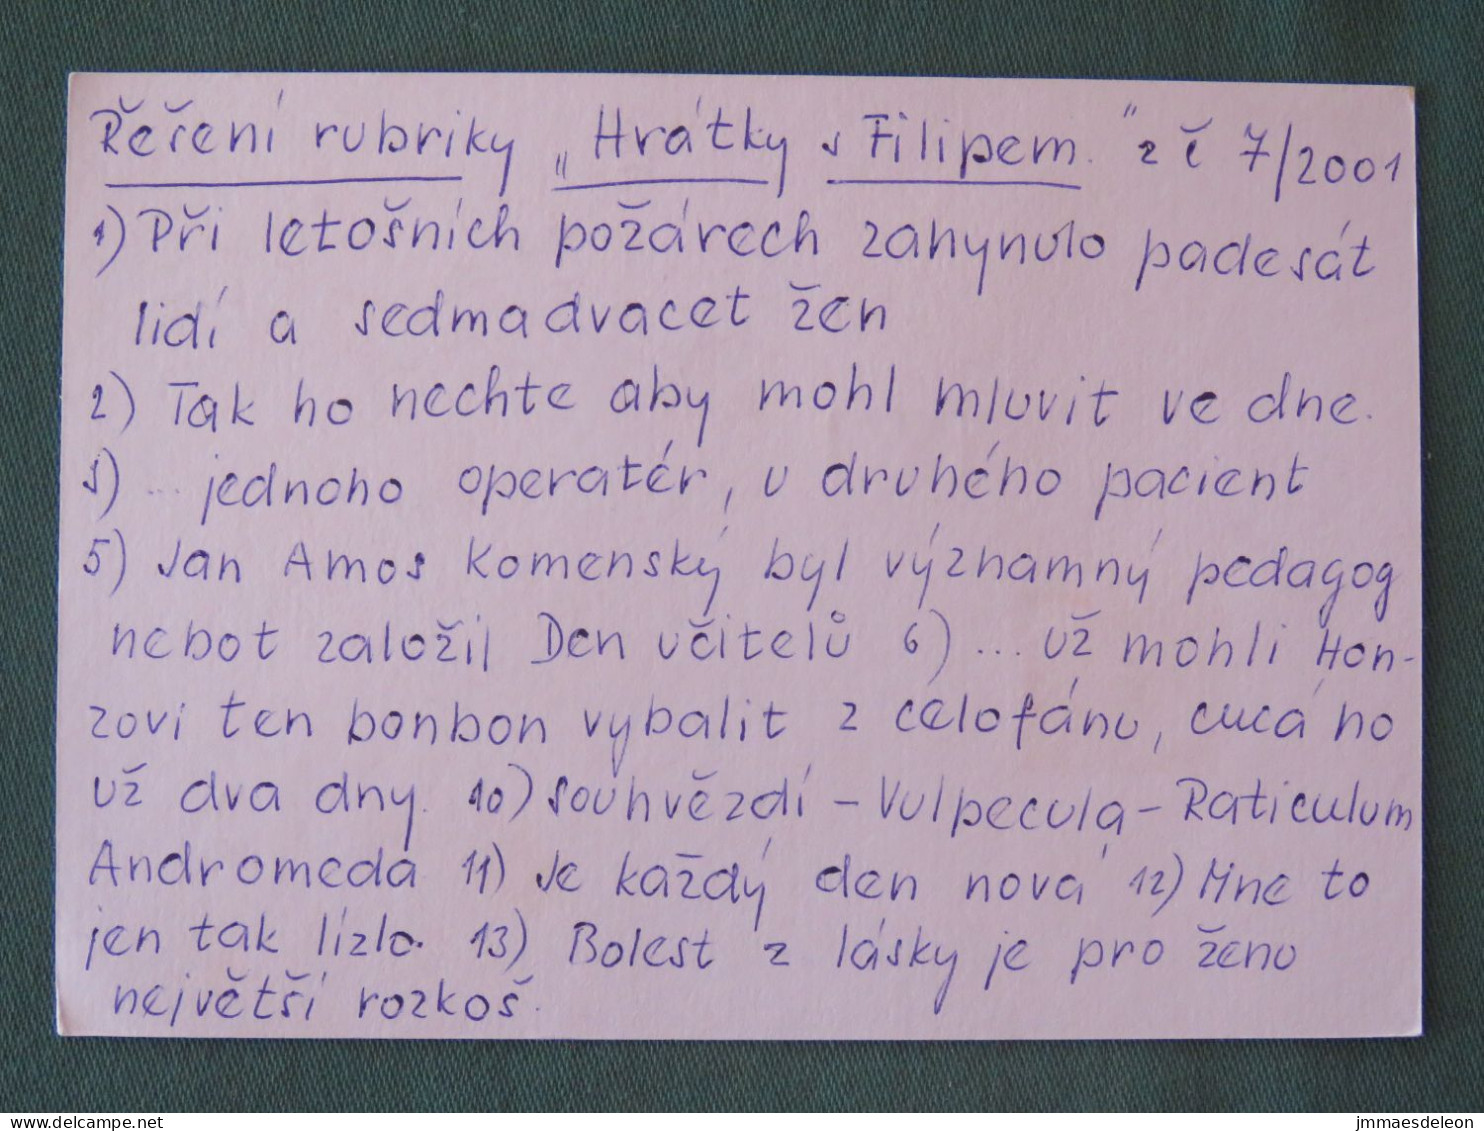 Řešení rubriky „Hrátky s Filipem." z č 7/2001
1) Při letošních požárech zahynulo padesát
lidí a sedmadvacet žen
2) Tak ho nechte aby mohl mluvit ve dne.
3) ... jednoho operatér, u druhého pacient
5) Jan Amos Komenský byl významný pedagog
nebot založil Den učitelů 6) ... už mohli Hon-
zovi ten bonbon vybalit z celofánu, cucá ho
už dva dny. 10) souhvězdí - Vulpecula - Raticulum
Andromeda 11) Je každý den nová 12) Mne to
jen tak lízlo. 13) Bolest z lásky je pro ženu
největší rozkoš.
delcampe.net
jmmaesdeleon